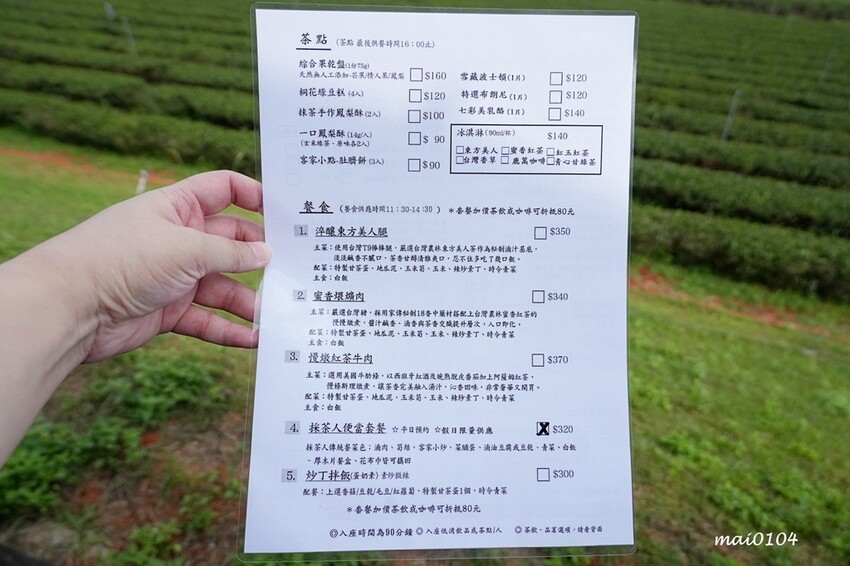 茶點 (茶點 最後供餐時間16:00止)
綜合果乾盤(1份75g) □ $160
天然無人工添加-芒果/情人果/鳳梨
桐花綠豆糕 (4入) □ $120
抹茶手作鳳梨酥 (2入) □ $100
一口鳳梨酥 (14g/入) □ $ 90
(玄米綠茶、原味各2入)
客家小點-肚臍餅 (3入) □ $90
雪藏波士頓 (1片) □ $120
特選布朗尼 (1片) □ $120
七彩美乳酪 (1片) □ $140
冰淇淋 (90ml/杯) $140
□東方美人 □蜜香紅茶 □紅玉紅茶
□台灣香草 □鹿篙咖啡 □青心甘綠茶
餐食 (餐食供應時間11:30-14:30) *套餐加價茶飲或咖啡可折抵80元
1. 淬釀東方美人腿 □ $350
主菜:使用台灣T9棒棒腿,嚴選台灣農林東方美人茶作為秘制滷汁基底,
淡淡鹹香不膩口,茶香甘醇清雅爽口,忍不住多吃了幾口飯。
配菜:特製甘茶蛋、地瓜泥、玉米筍、玉米、辣炒素丁、時令青菜
主食:白飯
2. 蜜香煨爌肉 □ $340
主菜:嚴選台灣豬,採用家傳秘制18香中藥材搭配上台灣農林蜜香紅茶的
慢慢燉煮,醬汁鹹香,滷香與茶香交織提升層次,入口即化。
配菜:特製甘茶蛋、地瓜泥、玉米筍、玉米、辣炒素丁、時令青菜
主食:白飯
3. 慢燉紅茶牛肉 □ $370
主菜:選用美國牛肋條,以西班牙紅酒及晚熟脫皮番茄加上阿薩姆紅茶,
慢條斯理燉煮,讓茶香完美融入湯汁,沁香回味,非常奢華又開胃。
配菜:特製甘茶蛋、地瓜泥、玉米筍、玉米、辣炒素丁、時令青菜
主食:白飯
4. 採茶人便當套餐 ☆平日預約 ☆假日限量供應 X $320
採茶人傳統餐菜色:滷肉、筍絲、客家小炒、菜脯蛋、滷油豆腐或豆乾、青菜、白飯
-厚木片餐盒、花布巾皆可攜回
5. 炒丁拌飯(蛋奶素) 素炒微辣 □ $300
配餐:上選香菇/豆乾/毛豆/紅蘿蔔,特製甘茶蛋1個,時令青菜
*套餐加價茶飲或咖啡可折抵80元
◎入座時間為90分鐘 ◎入座低消飲品或茶點/人 ◎茶飲、品茗選項,請看背面
mai0104